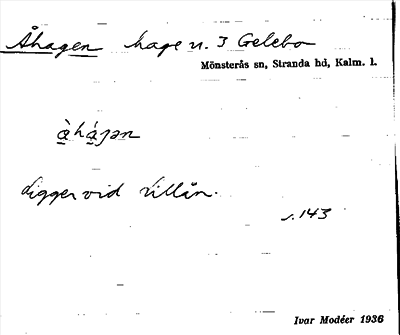 Åhagen hage n. 3 Gelebo
Mönsterås sn, Stranda hd, Kalm. l.
à̱há̱gan
Ligger vid Lillån.
s. 143
Ivar Modéer 1936